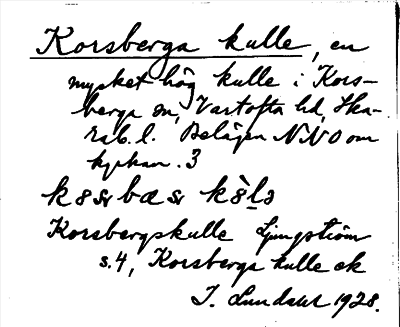 Korsberga kulle, en
mycket hög kulle i Kors-
berga sn, Vartofta hd, Ska-
rab. l. Belägen NNO om
kyrkan. 3
Korsbergskulle Ljungström
s. 4, Korsberga kulle ek
J. Lundahl 1928.